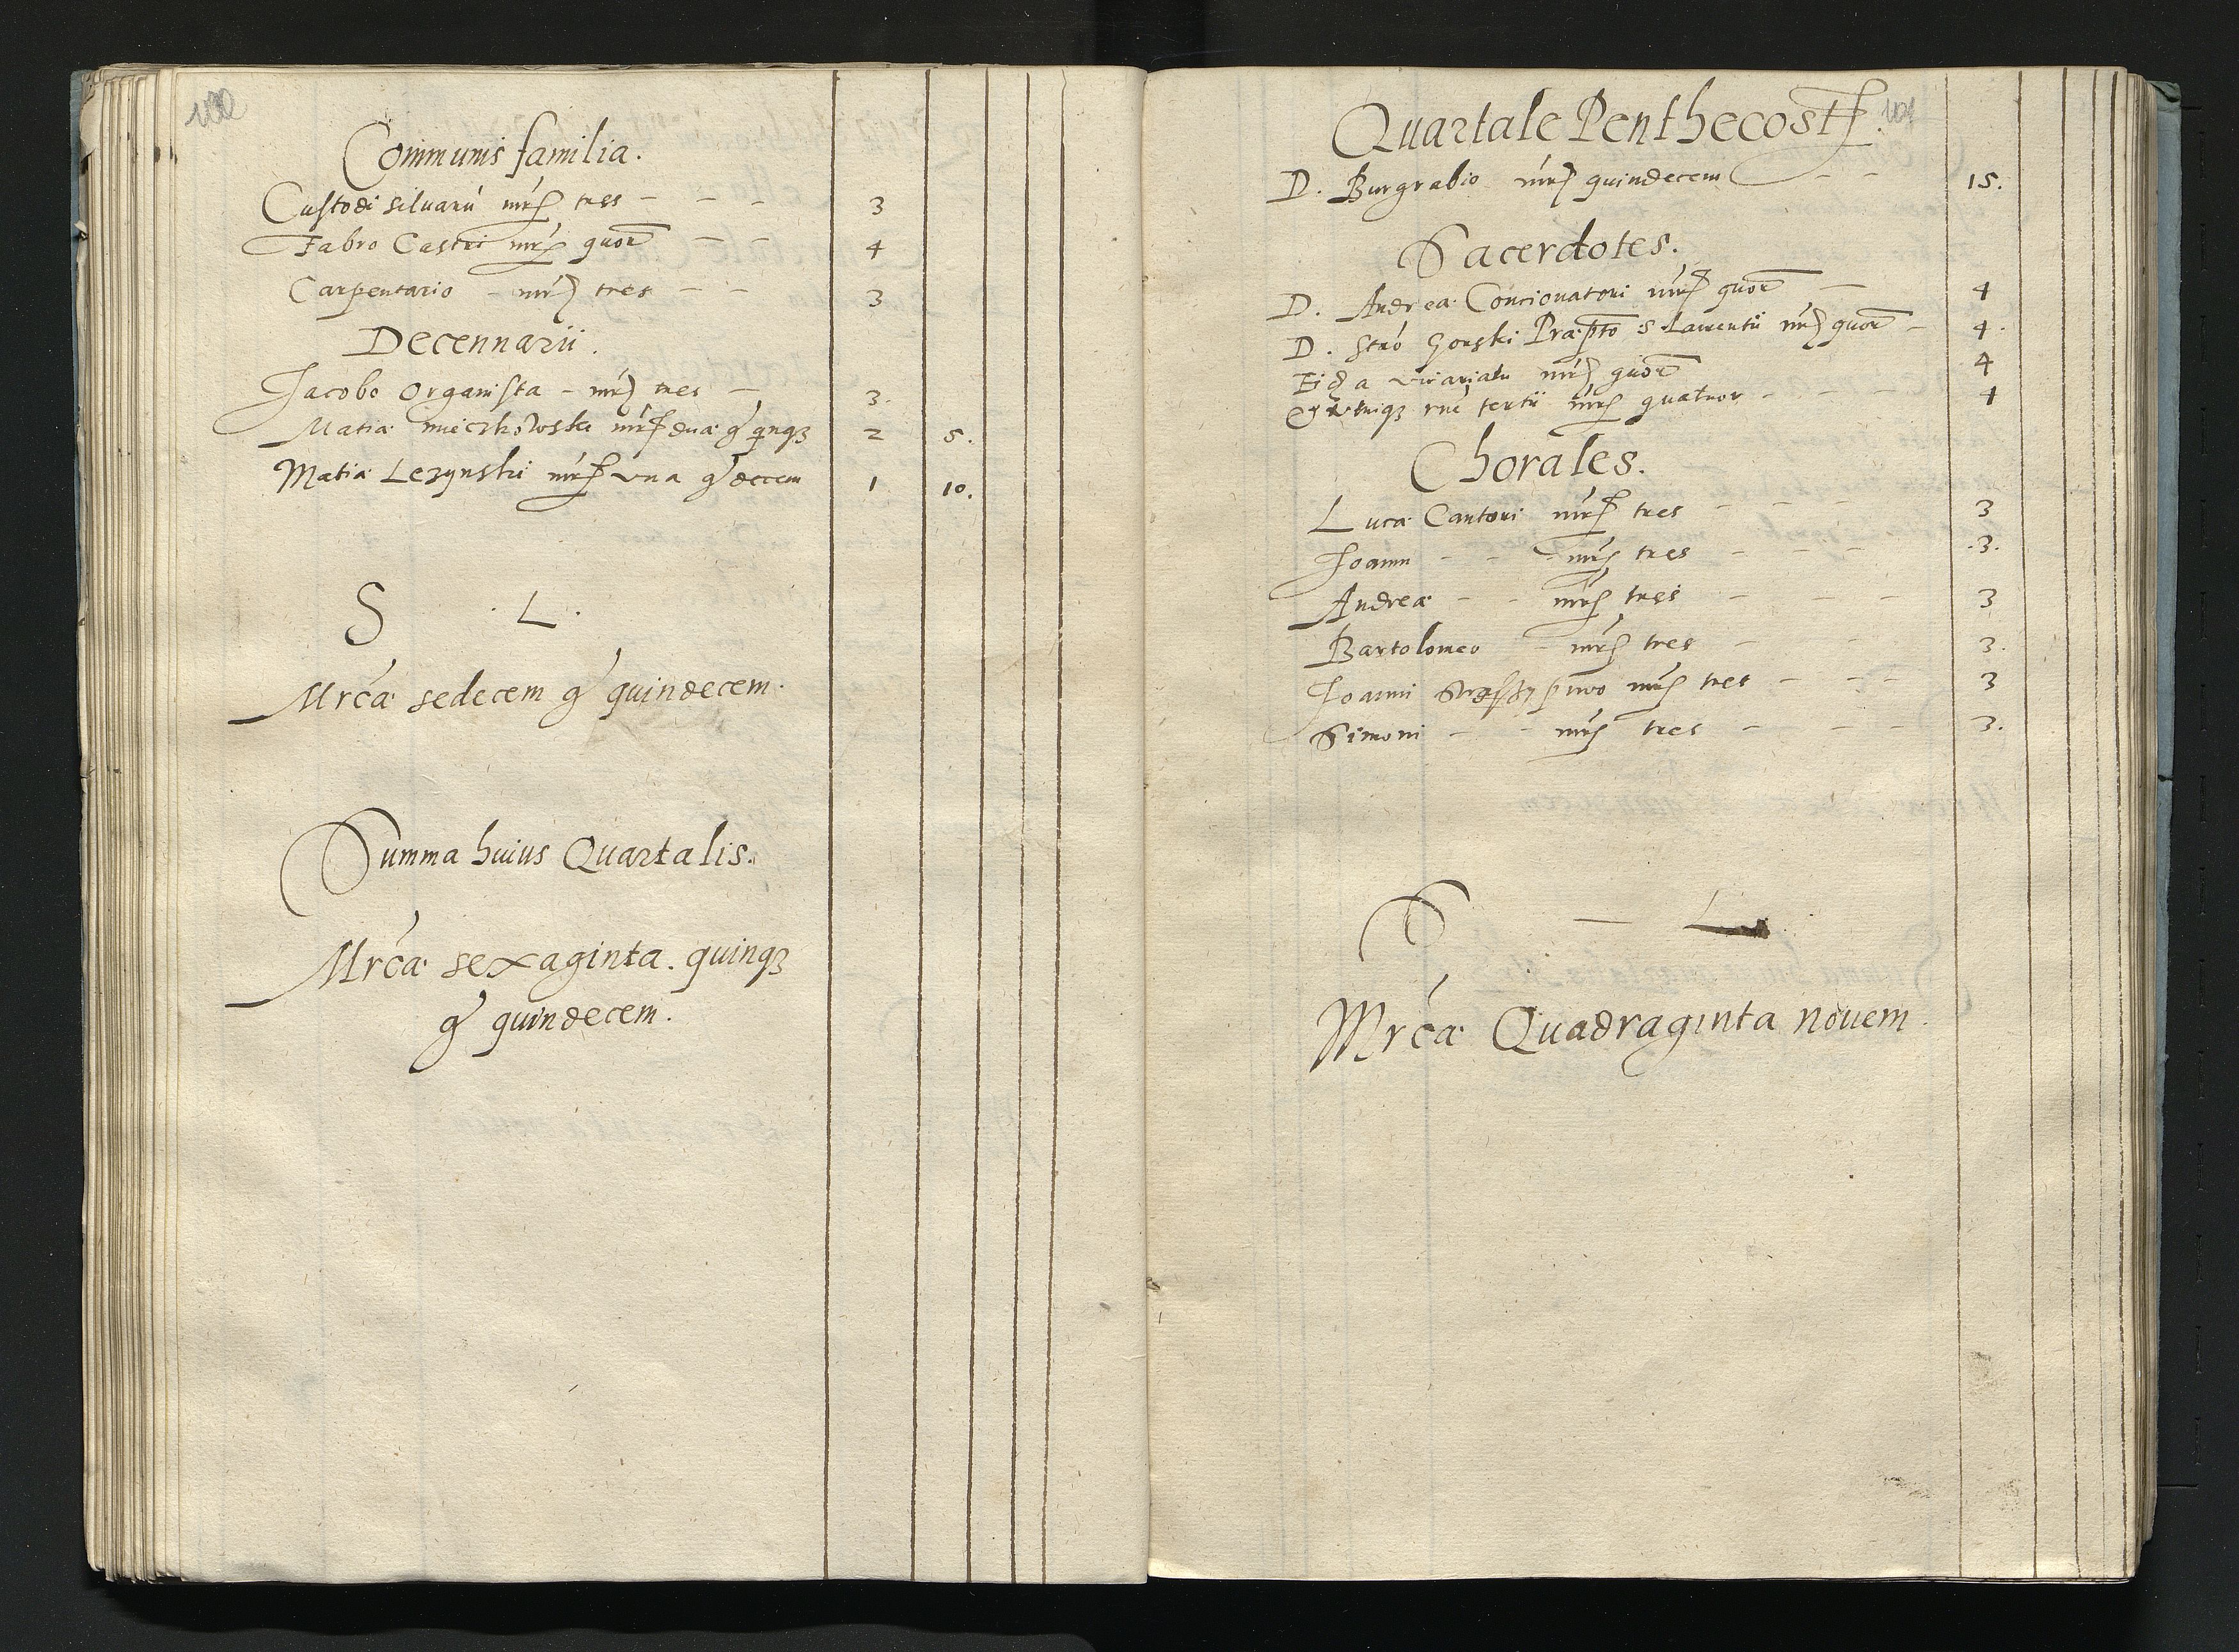 100
Communis familia.
Custodi siluarū mr̃ tres - - - 3
Fabro Castri mr̃ quor̃ - - 4
Carpentario - mr̃ tres - - 3
Decennarii.
Jacobo Organista - mr̃ tres - 3.
Matiæ mieczkowski mr̃ duæ g̃ qīnqꝫ 2 5.
Matiæ Lezynski mr̃ vna g̃ decem 1 10.
S . L .
Mrćæ sedecem g̃ quindecem.
Summa huius Quartalis.
Mrćæ sexaginta. quinqꝫ
g̃ quindecem.
101
Quartale Penthecost.
D. Burgrabio mr̃ quindecem - - 15.
Sacerdotes.
D. Andreæ Concionatori mr̃ quor̃ - 4
D. Stāo Gorski Præpto S Laurentii mr̃ quor̃ - 4.
vicariatu mr̃ quor̃ 4
tertii mr̃ quatuor - - - - 4
Chorales.
Lucæ Cantori mr̃ tres - - - 3
Joanni - - - mr̃ tres - - - .3.
Andreæ - - mr̃ tres - - - 3
Bartolomeo - mr̃ tres - - 3.
Joanni mr̃ tres - - - 3
Simoni - - mr̃ tres - - - 3.
S — L
Mrćæ Quadraginta nouem.